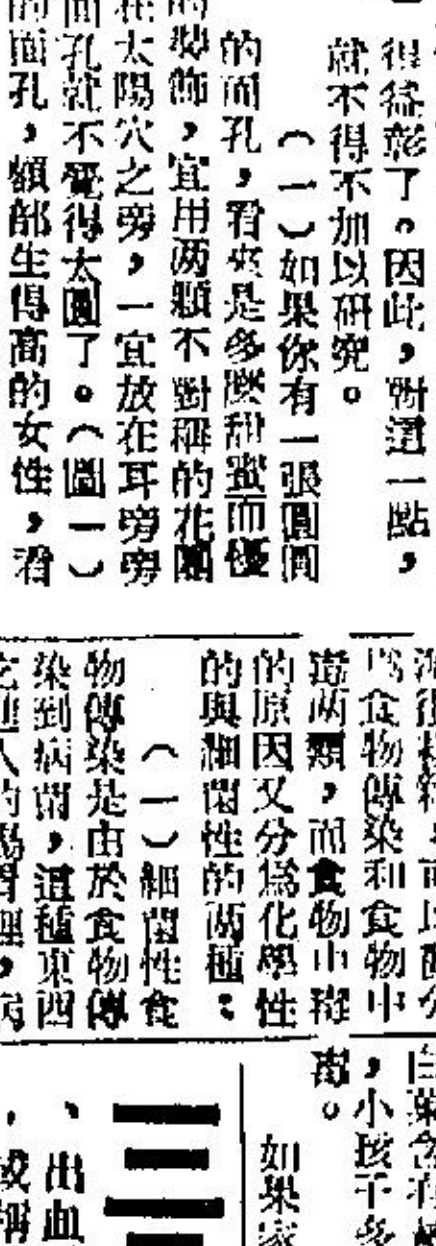 得益彰了。因此，對這一點，
就不得不加以研究。
（一）如果你有一張圓圓
的面孔，看來是多麼甜蜜而優
的裝飾，宜用两顆不對稱的花圈
在太陽穴之旁，一宜放在耳旁旁
面孔就不覺得太圓了。（圖一）
的面孔，額部生得高的女性，看
為食物傳染和食物中
毒两類，而食物中毒
的原因又分為化學性
的與細菌性的兩種：
（一）細菌性食
物傳染是由於食物傳
染到病菌，這種東西
，小孩子多
毒。
如果家
、出血
，或稱